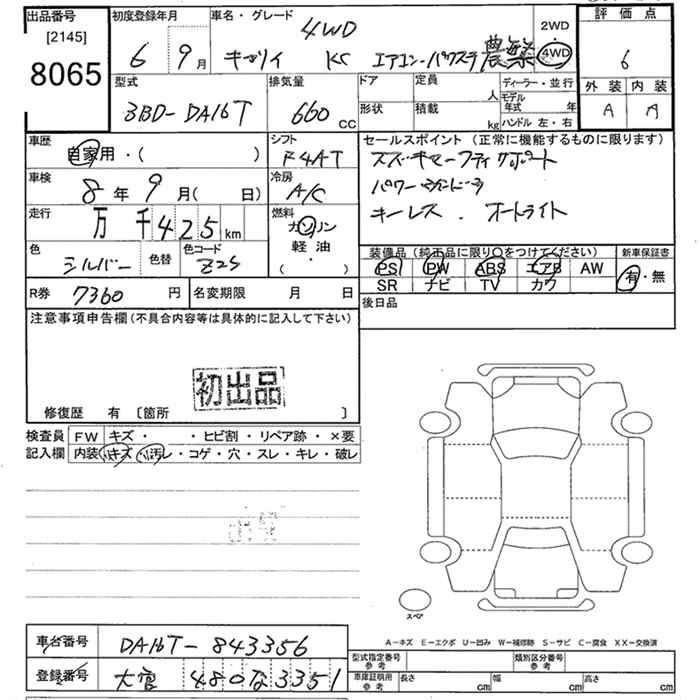 出品番号
[2145]
8065
初度登録年月
6 9月
車名・グレード
4WD
キャリイ KC エアコン・パワステ 農繁
2WD
4WD
評価点
6
外装 内装
A A
型式
3BD-DA16T
排気量
660 CC
ドア
定員 人
形状
積載 kg
ディーラー・並行
モデル年式 年
ハンドル 左・右
車歴
自家用・( )
シフト
F4AT
セールスポイント (正常に機能するものに限ります)
スズキセーフティサポート
パワーウィンドウ
キーレス . オートライト
車検
8年9月( 日)
冷房
A/C
走行
万千425km
燃料
ガソリン
軽油
( ・ )
色
シルバー
色替
色コード
Z2S
装備品 (純正品に限り○をつけてください)
PS PW ABS エアB AW
SR ナビ TV カワ
新車保証書
有・無
R券 7360円
名変期限 月 日
後日品
注意事項申告欄(不具合内容等は具体的に記入して下さい)
初出品
修復歴 有 [箇所 ]
検査員記入欄
FW キズ・ ・ヒビ割・リペア跡・×要
内装 小キズ・小汚レ・コゲ・穴・スレ・キレ・破レ
スペア
A-キズ E-エクボ U-凹み W-補修跡 S-サビ C-腐食 XX-交換済
車台番号 DA16T-843356
登録番号 大宮480な3351
型式指定番号 参考
類別区分番号 参考
車庫証明用 参考
長さ cm
幅 cm
高さ cm